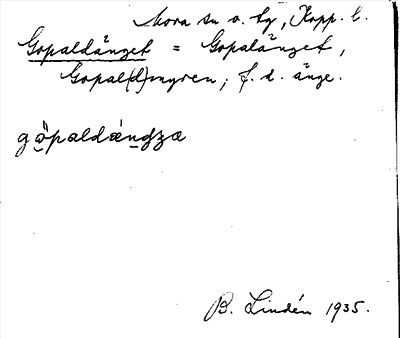 Mora sn o. tg, Kopp. l.
Gopaldänget = Gopalänget,
Gopal(d)myren; f. d. änge.
gö̀paldǽndʒæ
B. Lindén 1935.